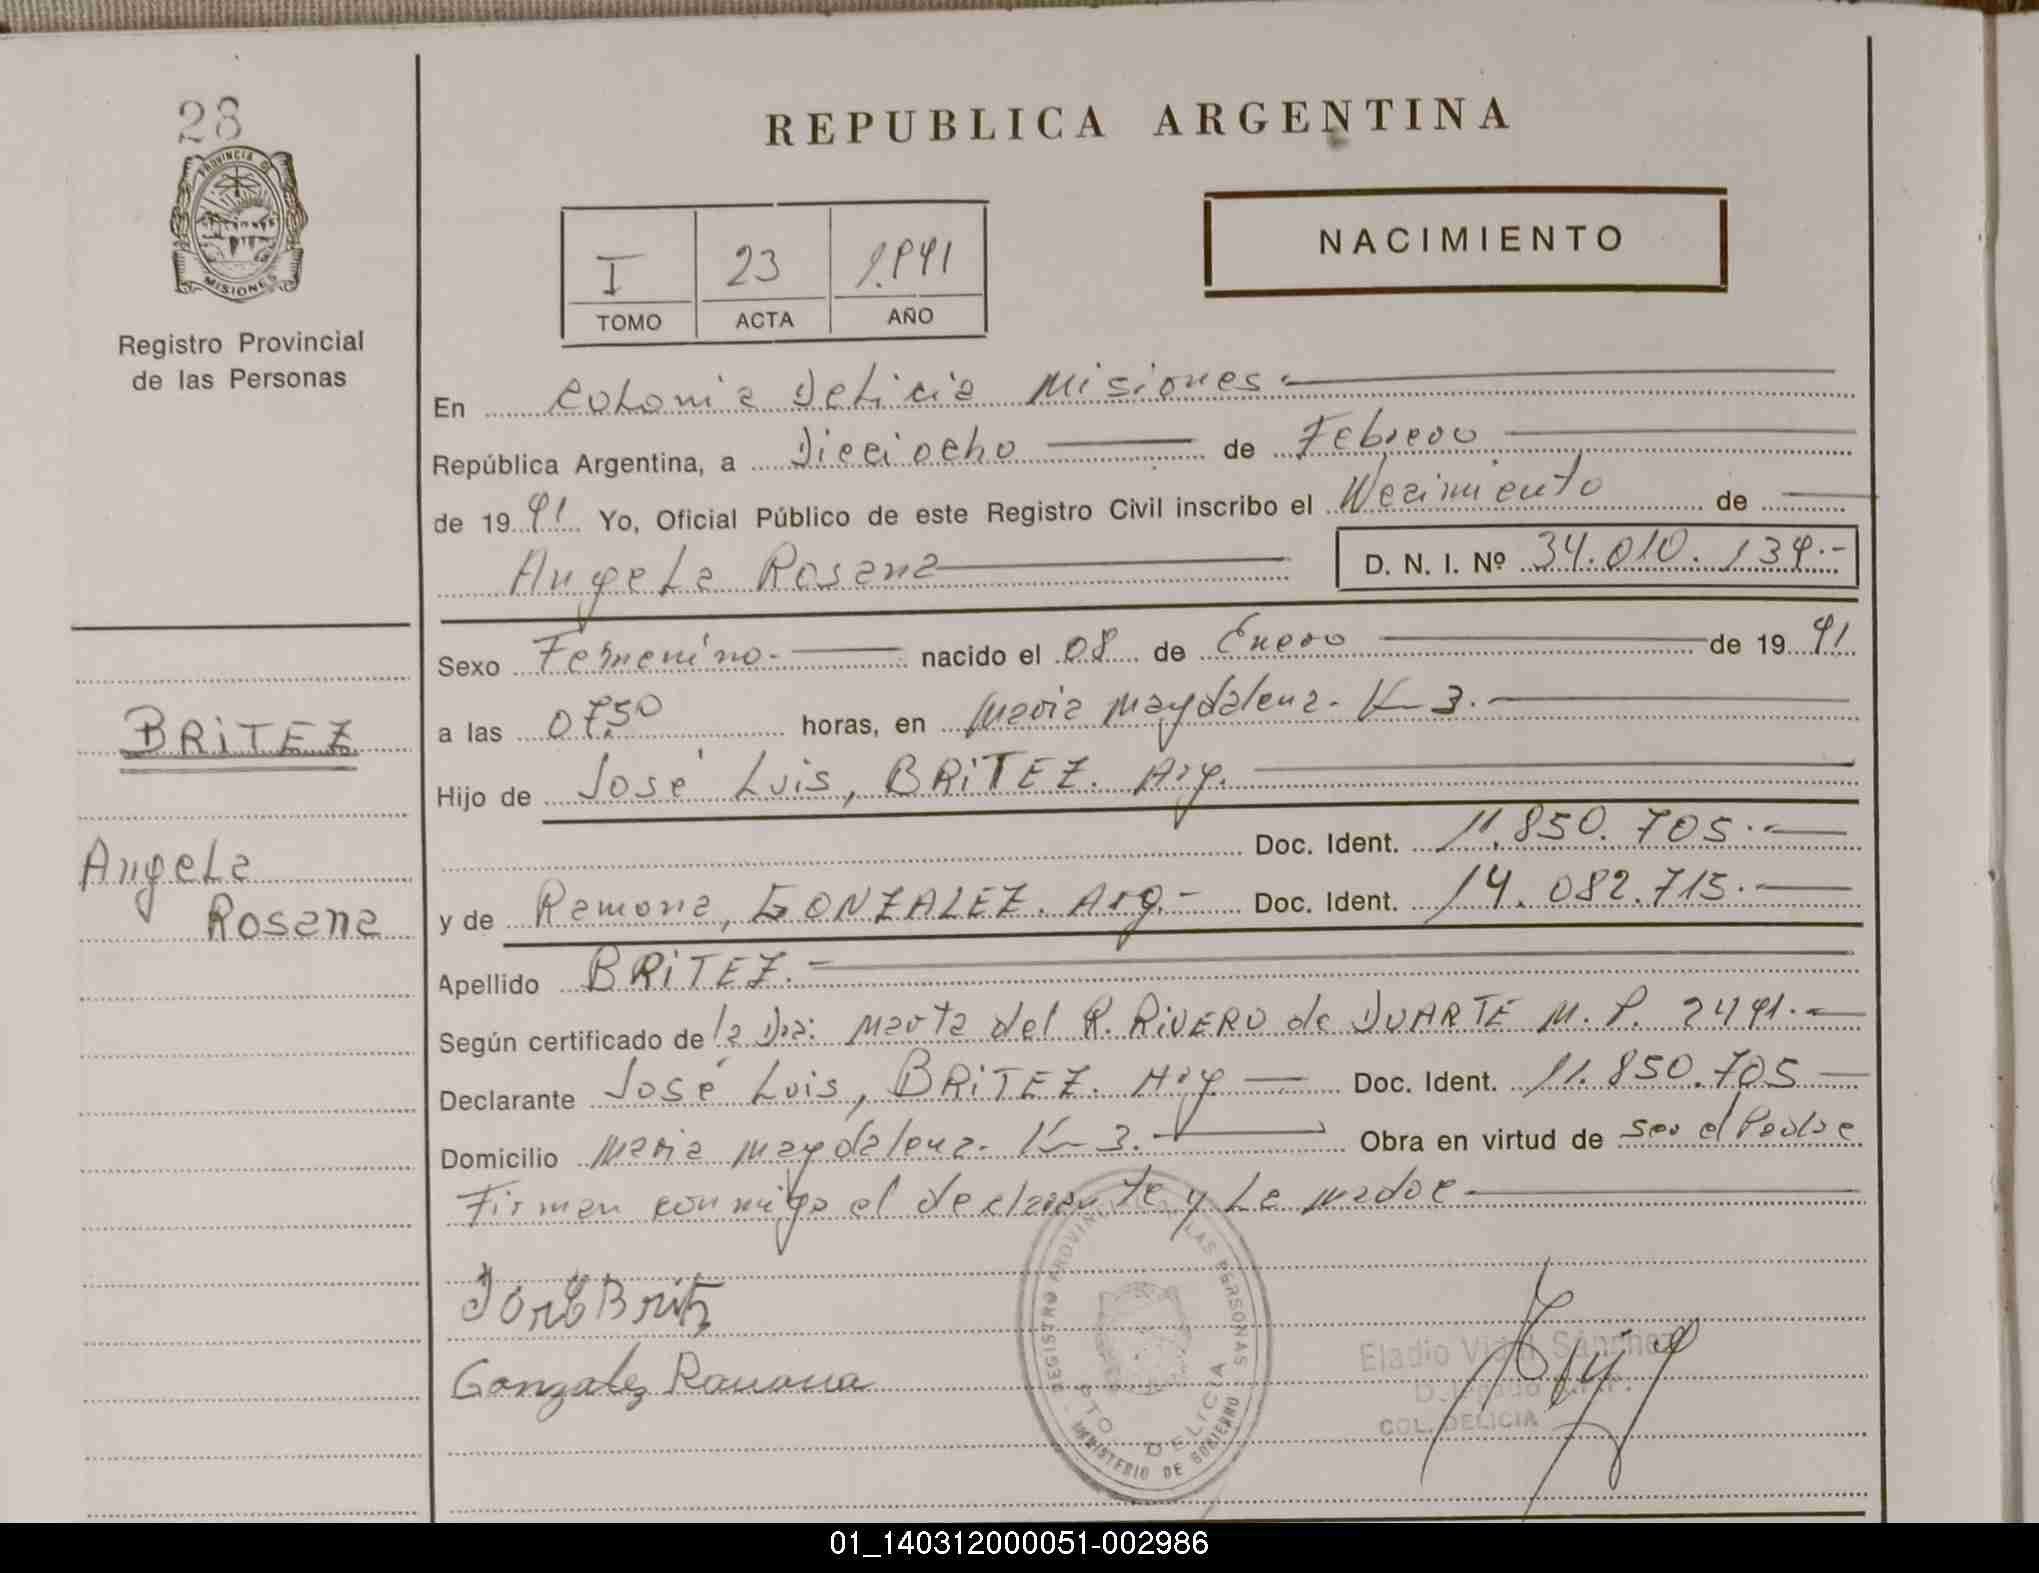 28
PROVINCIA DE
MISIONES
Registro Provincial
de las Personas
BRITEZ
Angela
Rosana
REPUBLICA ARGENTINA
I 23 1.991
TOMO ACTA AÑO
NACIMIENTO
En Colonia Delicia Misiones.
República Argentina, a Dieciocho de Febrero
de 1991 Yo, Oficial Público de este Registro Civil inscribo el Nacimiento de
Angela Rosana D. N. I. Nº 34.010.139.-
Sexo Femenino.- nacido el 08 de Enero de 1991
a las 07,50 horas, en Maria Magdalena- K 3.
Hijo de José Luis, BRITEZ. Arg.
Doc. Ident. 11.850.705.-
y de Ramona, GONZALEZ. Arg.- Doc. Ident. 14.082.715.-
Apellido BRITEZ.-
Según certificado de la Dra: Marta del R. RIVERO de DUARTE M. P. 2491.-
Declarante José Luis, BRITEZ. Arg Doc. Ident. 11.850.705
Domicilio Maria Magdalena- K 3.- Obra en virtud de ser el Padre
Firman conmigo el declarante y La madre
José Britz
Gonzalez Ramona
REGISTRO PROVINCIAL DE LAS PERSONAS
PTO. DELICIA
MINISTERIO DE GOBIERNO
Eladio Vidal Sánchez
Delegado
COL. DELICIA
01_140312000051-002986